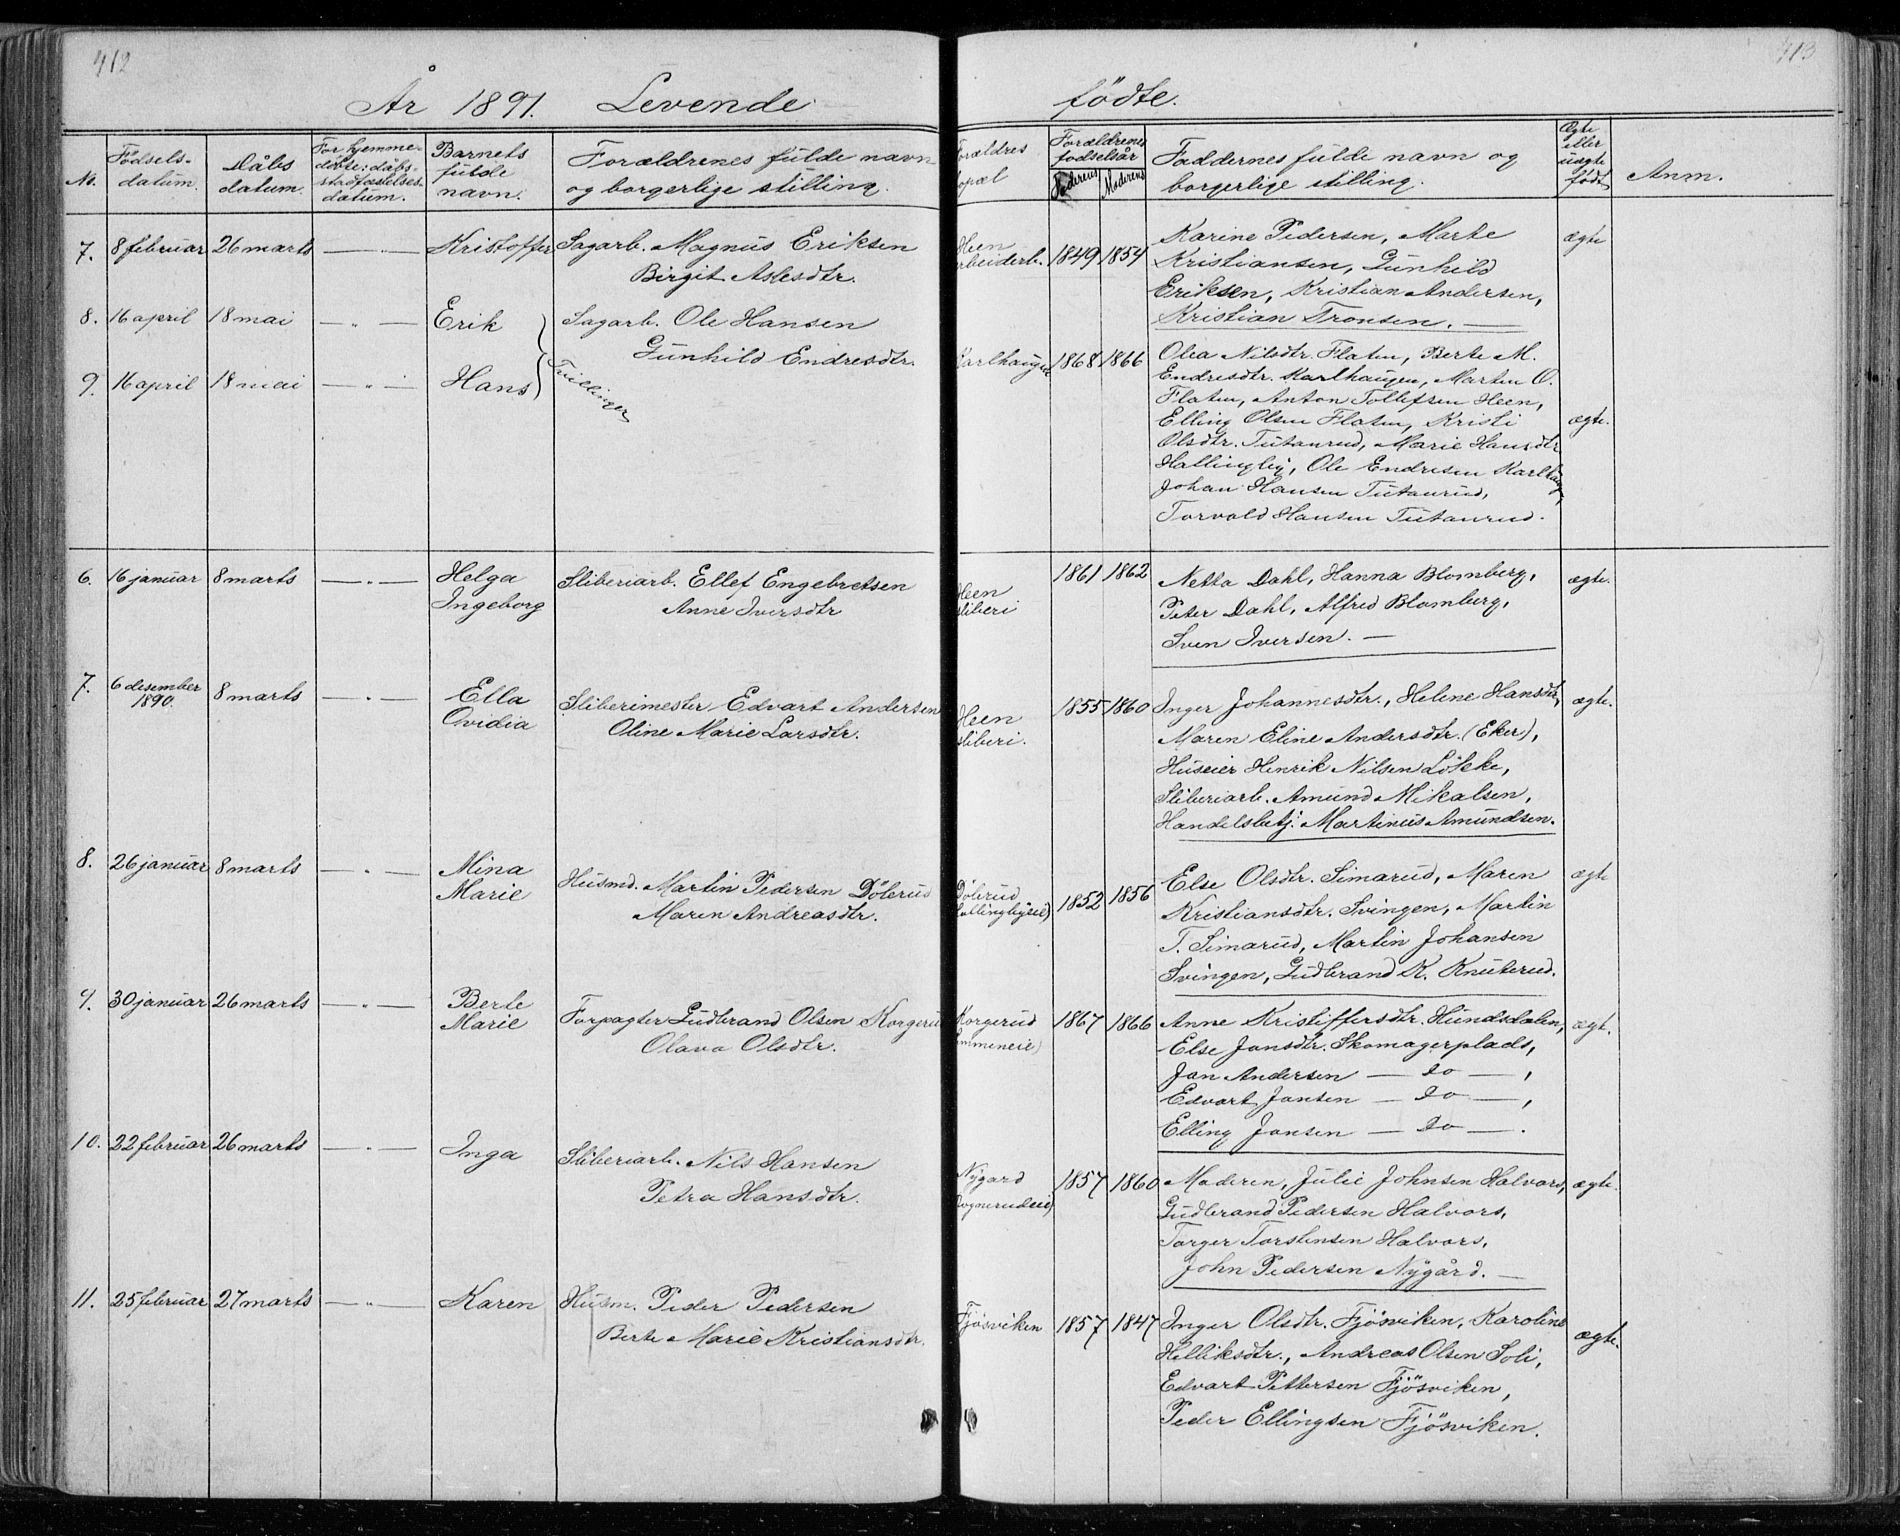 412
413
År 1891. Levende fødte.
No.
Fødsels-
datum.
Dåbs
datum.
For hjemme-
døbte: dåbs-
stadfæstelses-
datum.
Barnets
fulde
navn.
Forældrenes fulde navn
og borgerlige stilling.
Forældres
bopæl
Forældrenes
fødselsår
Faderens
Moderens
Faddernes fulde navn og
borgerlige stilling.
Ægte
eller
uægte
født
Anm.
7. 8 februar 26 marts — „ — Kristoffer Sagarb. Magnus Eriksen
Birgit Aslesdtr.
Heen
arbeiderb. 1849 1854
Karine Pedersen, Marte
Kristiansen, Gunhild
Eriksen, Kristian Andersen,
Kristian Tronsen. —
ægte
8. 16 april 18 mai — „ — Erik
Sagarb. Ole Hansen
Gunhild Endresdtr.
9. 16 april 18 mai — „ — Hans
Tvillinger
Karlhaugen 1868 1866
Olea Nilsdtr. Flaten, Berte M.
Endresdtr. Karlhaugen, Marten O.
Flaten, Anton Tollefsen Heen,
Elling Olsen Flaten, Kristi
Olsdtr. Tutanrud, Marie Hansdtr
Hallingby, Ole Endresen Karlhaug,
Johan Hansen Tutanrud,
Torvald Hansen Tutanrud.
ægte.
6. 16 januar 8 marts — „ — Helga
Ingeborg
Sliberiarb. Ellef Engebretsen
Anne Iversdtr
Heen
sliberi
1861 1862
Netta Dahl, Hanna Blomberg,
Peter Dahl, Alfred Blomberg,
Sven Iversen. —
ægte.
7. 6 desember
1890. 8 marts — „ — Ella
Ovidia
Sliberimester Edvart Andersen
Oline Marie Larsdtr.
Heen
sliberi.
1855 1860
Inger Johannesdtr., Helene Hansdtr,
Maren Eline Andersdtr. (Eker),
Huseier Henrik Nilsen Løkke,
Sliberiarb. Amund Mikalsen,
Handelsbetj. Martinius Amundsen.
ægte.
8. 26 januar 8 marts — „ — Mina
Marie
Husmd. Martin Pedersen Dølerud
Maren Andreasdtr.
Dølerud
(Hallingbyeie)
1852 1856
Else Olsdtr. Simarud, Maren
Kristiansdtr. Svingen, Martin
T. Simarud, Martin Johansen
Svingen, Gudbrand K. Knuterud.
ægte
9. 30 januar 26 marts — „ — Berte
Marie
Forpagter Gudbrand Olsen Korgerud
Olava Olsdtr.
Korgerud
1867 1866
Anne Kristiffersdtr. Hundsdalen,
Else Jonsdtr. Skomagerplads,
Jon Andersen — do — ,
Edvart Jonsen — do — ,
Elling Jonsen — do — .
ægt.
10. 22 februar 26 marts — „ — Inga
Sliberiarb. Nils Hansen
Petra Hansdtr.
Nygard
1857 1860
Moderen, Julie Johnsen Halvors,
Gudbrand Pedersen Halvors,
Torger Torstensen Halvors,
John Pedersen Nygård. —
ægte.
11. 25 februar 27 marts — „ — Karen
Husm. Peder Pedersen
Berte Marie Kristiansdtr.
Fjøsviken 1857 1847
Inger Olsdtr. Fjøsviken, Karoline
Helliksdtr., Andreas Olsen Soli,
Edvart Pettersen Fjøsviken,
Peder Ellingsen Fjøsviken.
ægte.